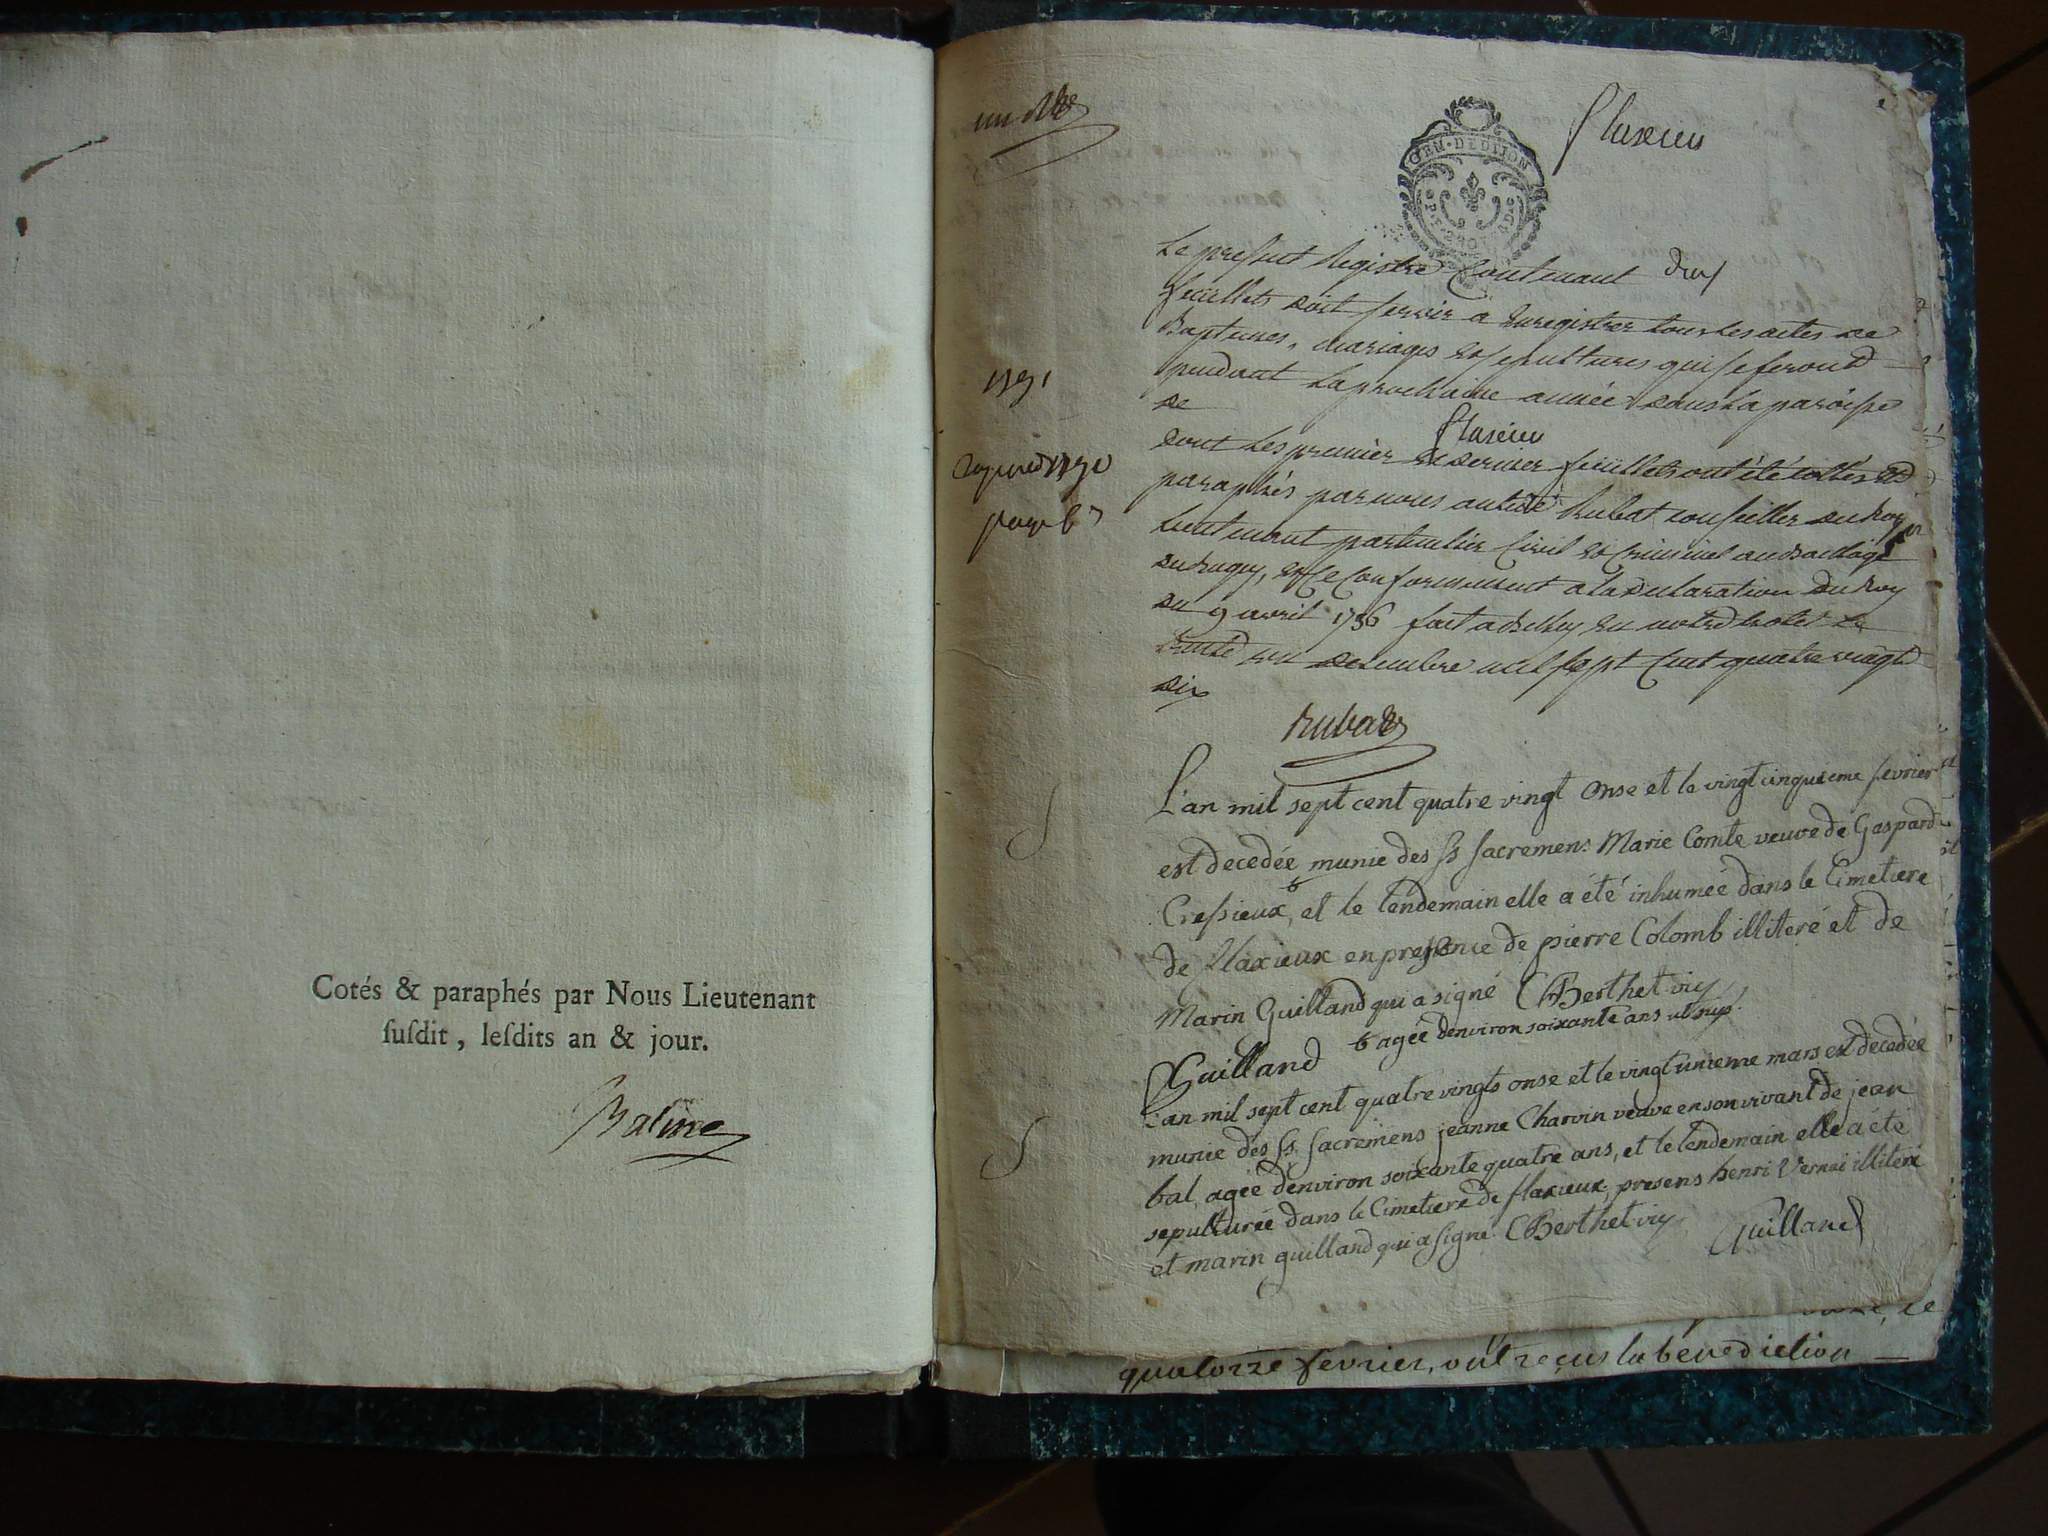 Cotés & paraphés par Nous Lieutenant
ſuſdit, leſdits an & jour.
Balme
flaxieu
GEN·DE DIJON
1791
Le present Registre Contenant deux
feuillets doit servir a Enregistrer tous les actes de
Baptemes, mariages et sepultures qui se feront
pendant la prochaine année dans la paroisse
de flaxieu
dont les premier et dernier feuillets ont été cottés et
paraphés par nous antide Rubat conseiller du Roy
Lieutenant particulier Civil et Criminel au Bailliage
du bugey, et ce Conformement a la declaration du Roy
du 9 avril 1736 fait a Belley en notre hotel le
trente un decembre mil sept Cent quatre vingt
dix
Rubat
L'an mil sept cent quatre vingt onse et le vingt cinquieme fevrier
est decedée munie des SS sacremens Marie Comte veuve de Gaspard
Cressieux, et le lendemain elle a été inhumée dans le Cimetiere
de flaxieux en presence de pierre Colomb illiteré et de
Marin Guilland qui a signé Berthet vic
Guilland agée denviron soixante ans ut sup.
L'an mil sept cent quatre vingts onse et le vingt unieme mars est decedée
munie des SS. sacremens jeanne Charvin veuve en son vivant de jean
bal, agée denviron soixante quatre ans, et le lendemain elle a été
sepulturée dans le Cimetiere de flaxieux, presens henri Vernai illiteré
et marin guilland qui a signé Berthet vic Guilland
quatorze fevrier, ont reçus la benediction